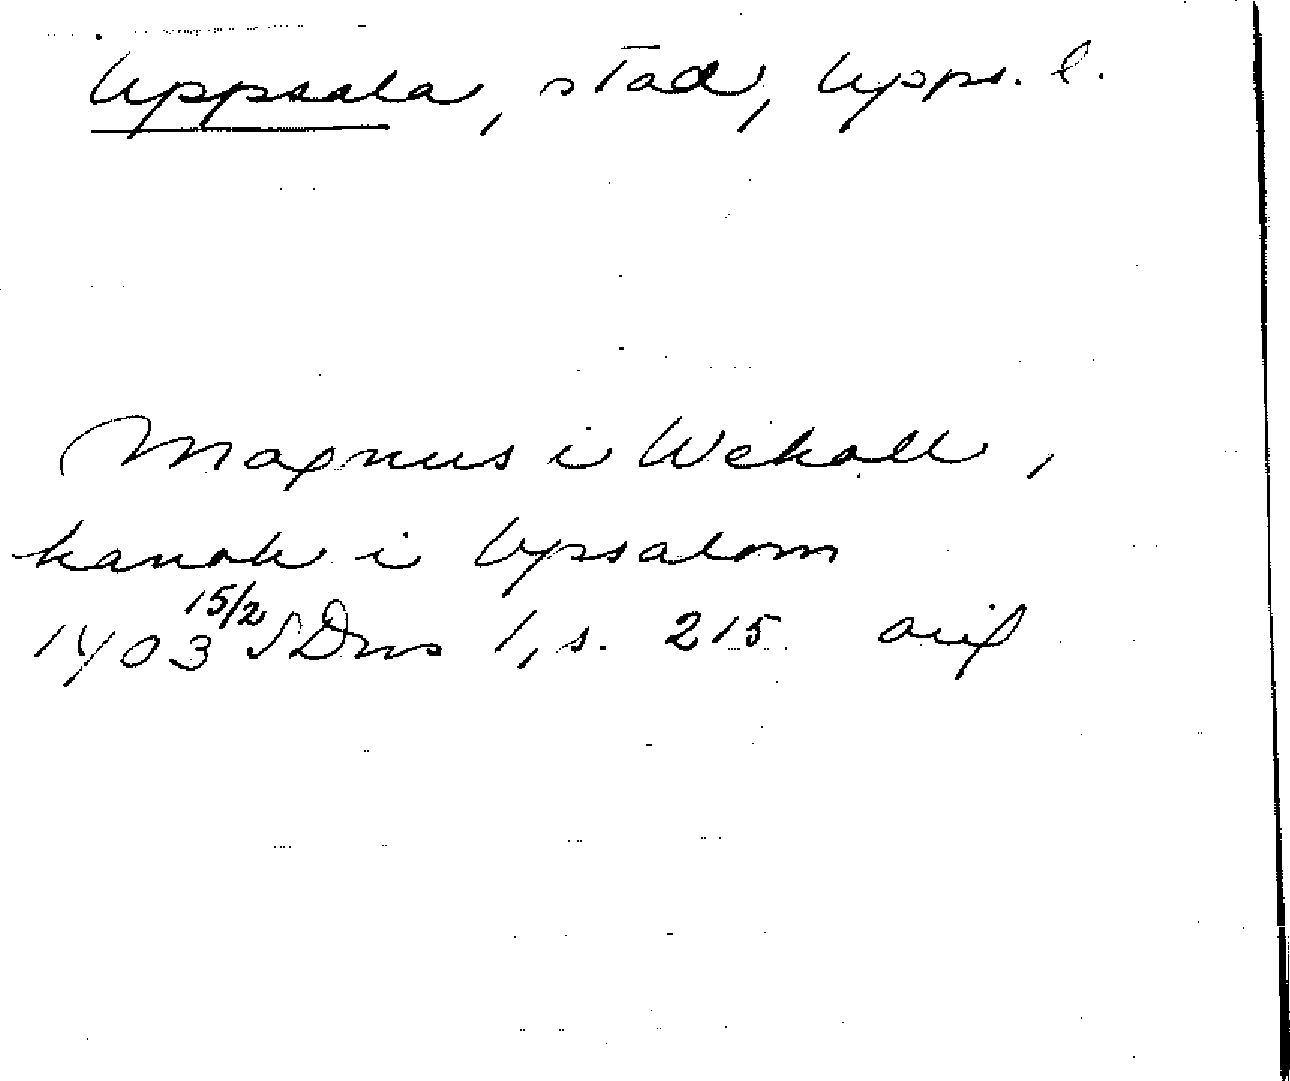 Uppsala, stad, Upps. l.
Magnus i Wekall,
kanok i Upsalom
1403 15/2 SDns 1, s. 215 avif